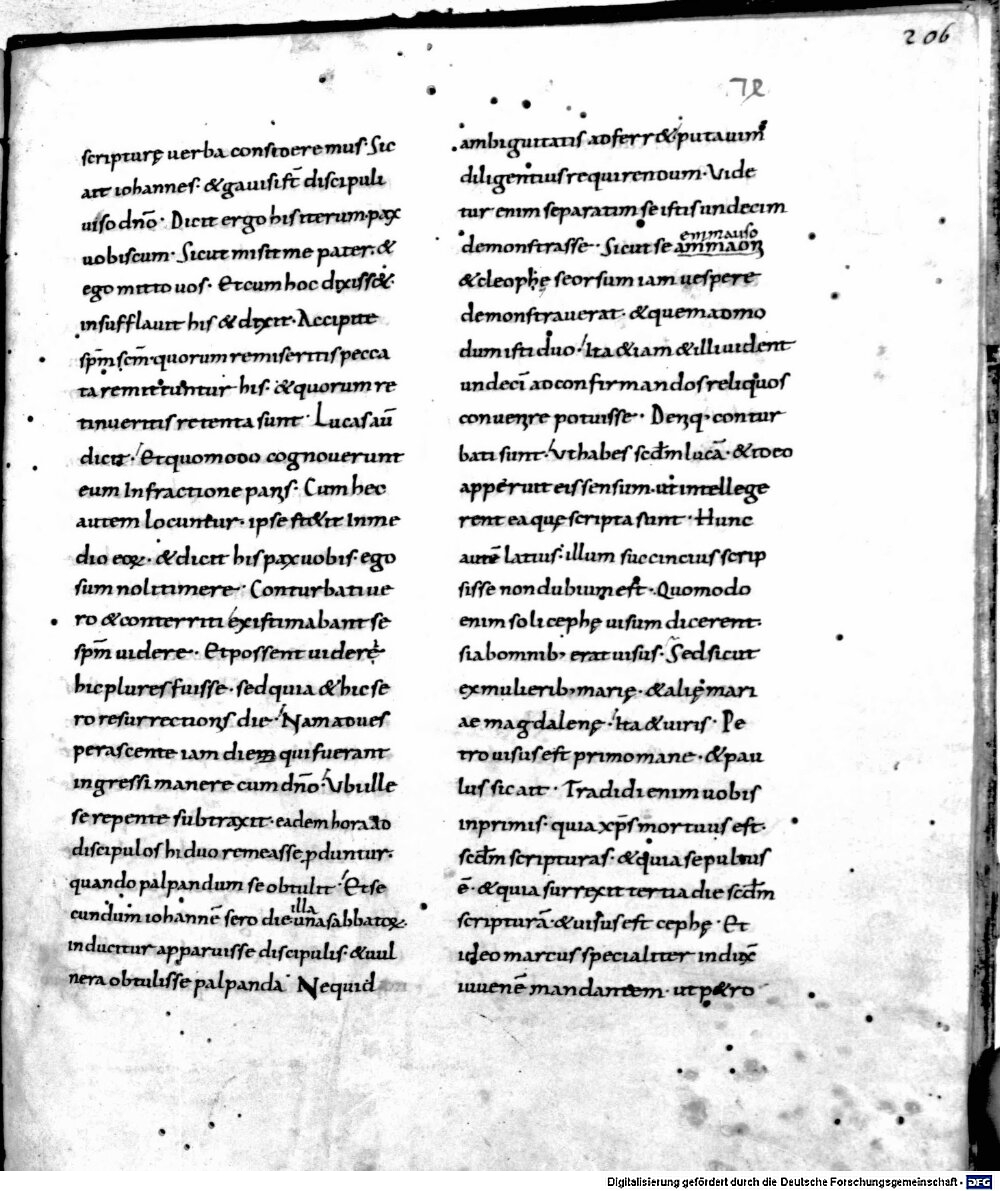 206
scripturę uerba consideremus· Sic
ait iohannes· & gauisi st̄ discipuli
uiso dn̄o· Dicit ergo his iterum· pax
uobiscum· Sicut misit me pater· &
ego mitto uos· Et cum hoc dixiss&·
insufflauit his & dixit· Accipite
sp̄m sc̄m· quorum remiseritis pecca
ta remittuntur his· & quorum re
tinueritis retenta sunt· Lucas aū
dicit· Et quomodo cognouerunt
eum In fractione panis· Cum hec
autem locuntur· ipse st&it In me
dio eoꝝ· & dicit his pax uobis· ego
sum nolit timere· Conturbati ue
ro & conterriti existimabant se
sp̄m uidere· Et possent uidere
hic plures fuisse· sed quia & hic se
ro resurrectionis die· Nam ad ues
perascente iam diem qui fuerant
ingressi manere cum dn̄o· Vbi ille
se repente subtraxit· eadem hora ad
discipulos hi duo remeasse ꝓduntur·
quando palpandum se obtulit· Et se
cundum iohannē sero die illa una sabbatoꝝ·
inducitur apparuisse discipulis· & uul
nera obtulisse palpanda· Ne quid
ambiguitatis adferr& putauim̄
diligentius requirendum· Vide
tur enim separatim se istis undecim
demonstrasse· Sicut se ammaon emmauso
& cleophę seorsum iam uespere
demonstrauerat· & quemadmo
dum isti duo· Ita & iam & illi uident
undeci ad confirmandos reliquos
conuenire potuisse· Deniq· contur
bati sunt· Vt habes scd̄m lucā· & ideo
apperuit eis sensum· ut intellege
rent ea quę scripta sunt· Hunc
autē latius· illum succincius scrip
sisse non dubium est· Quomodo
enim soli cephę uisum dicerent·
si ab omnib; erat uisus· Sed sicut
ex mulierib; marię· & alię mari
ae magdalenę· Ita & uiris· Pe
tro uisus est primo mane· & pau
lus sic ait· Tradidi enim uobis
inprimis· quia xp̄s mortuus est·
scd̄m scripturas· & quia sepultus
ē· & quia surrexit tertia die scd̄m
scripturā· & uisus est cephę· Et
ideo marcus specialiter indux̄
iuuenē mandantem· ut p&ro
Digitalisierung gefördert durch die Deutsche Forschungsgemeinschaft · DFG